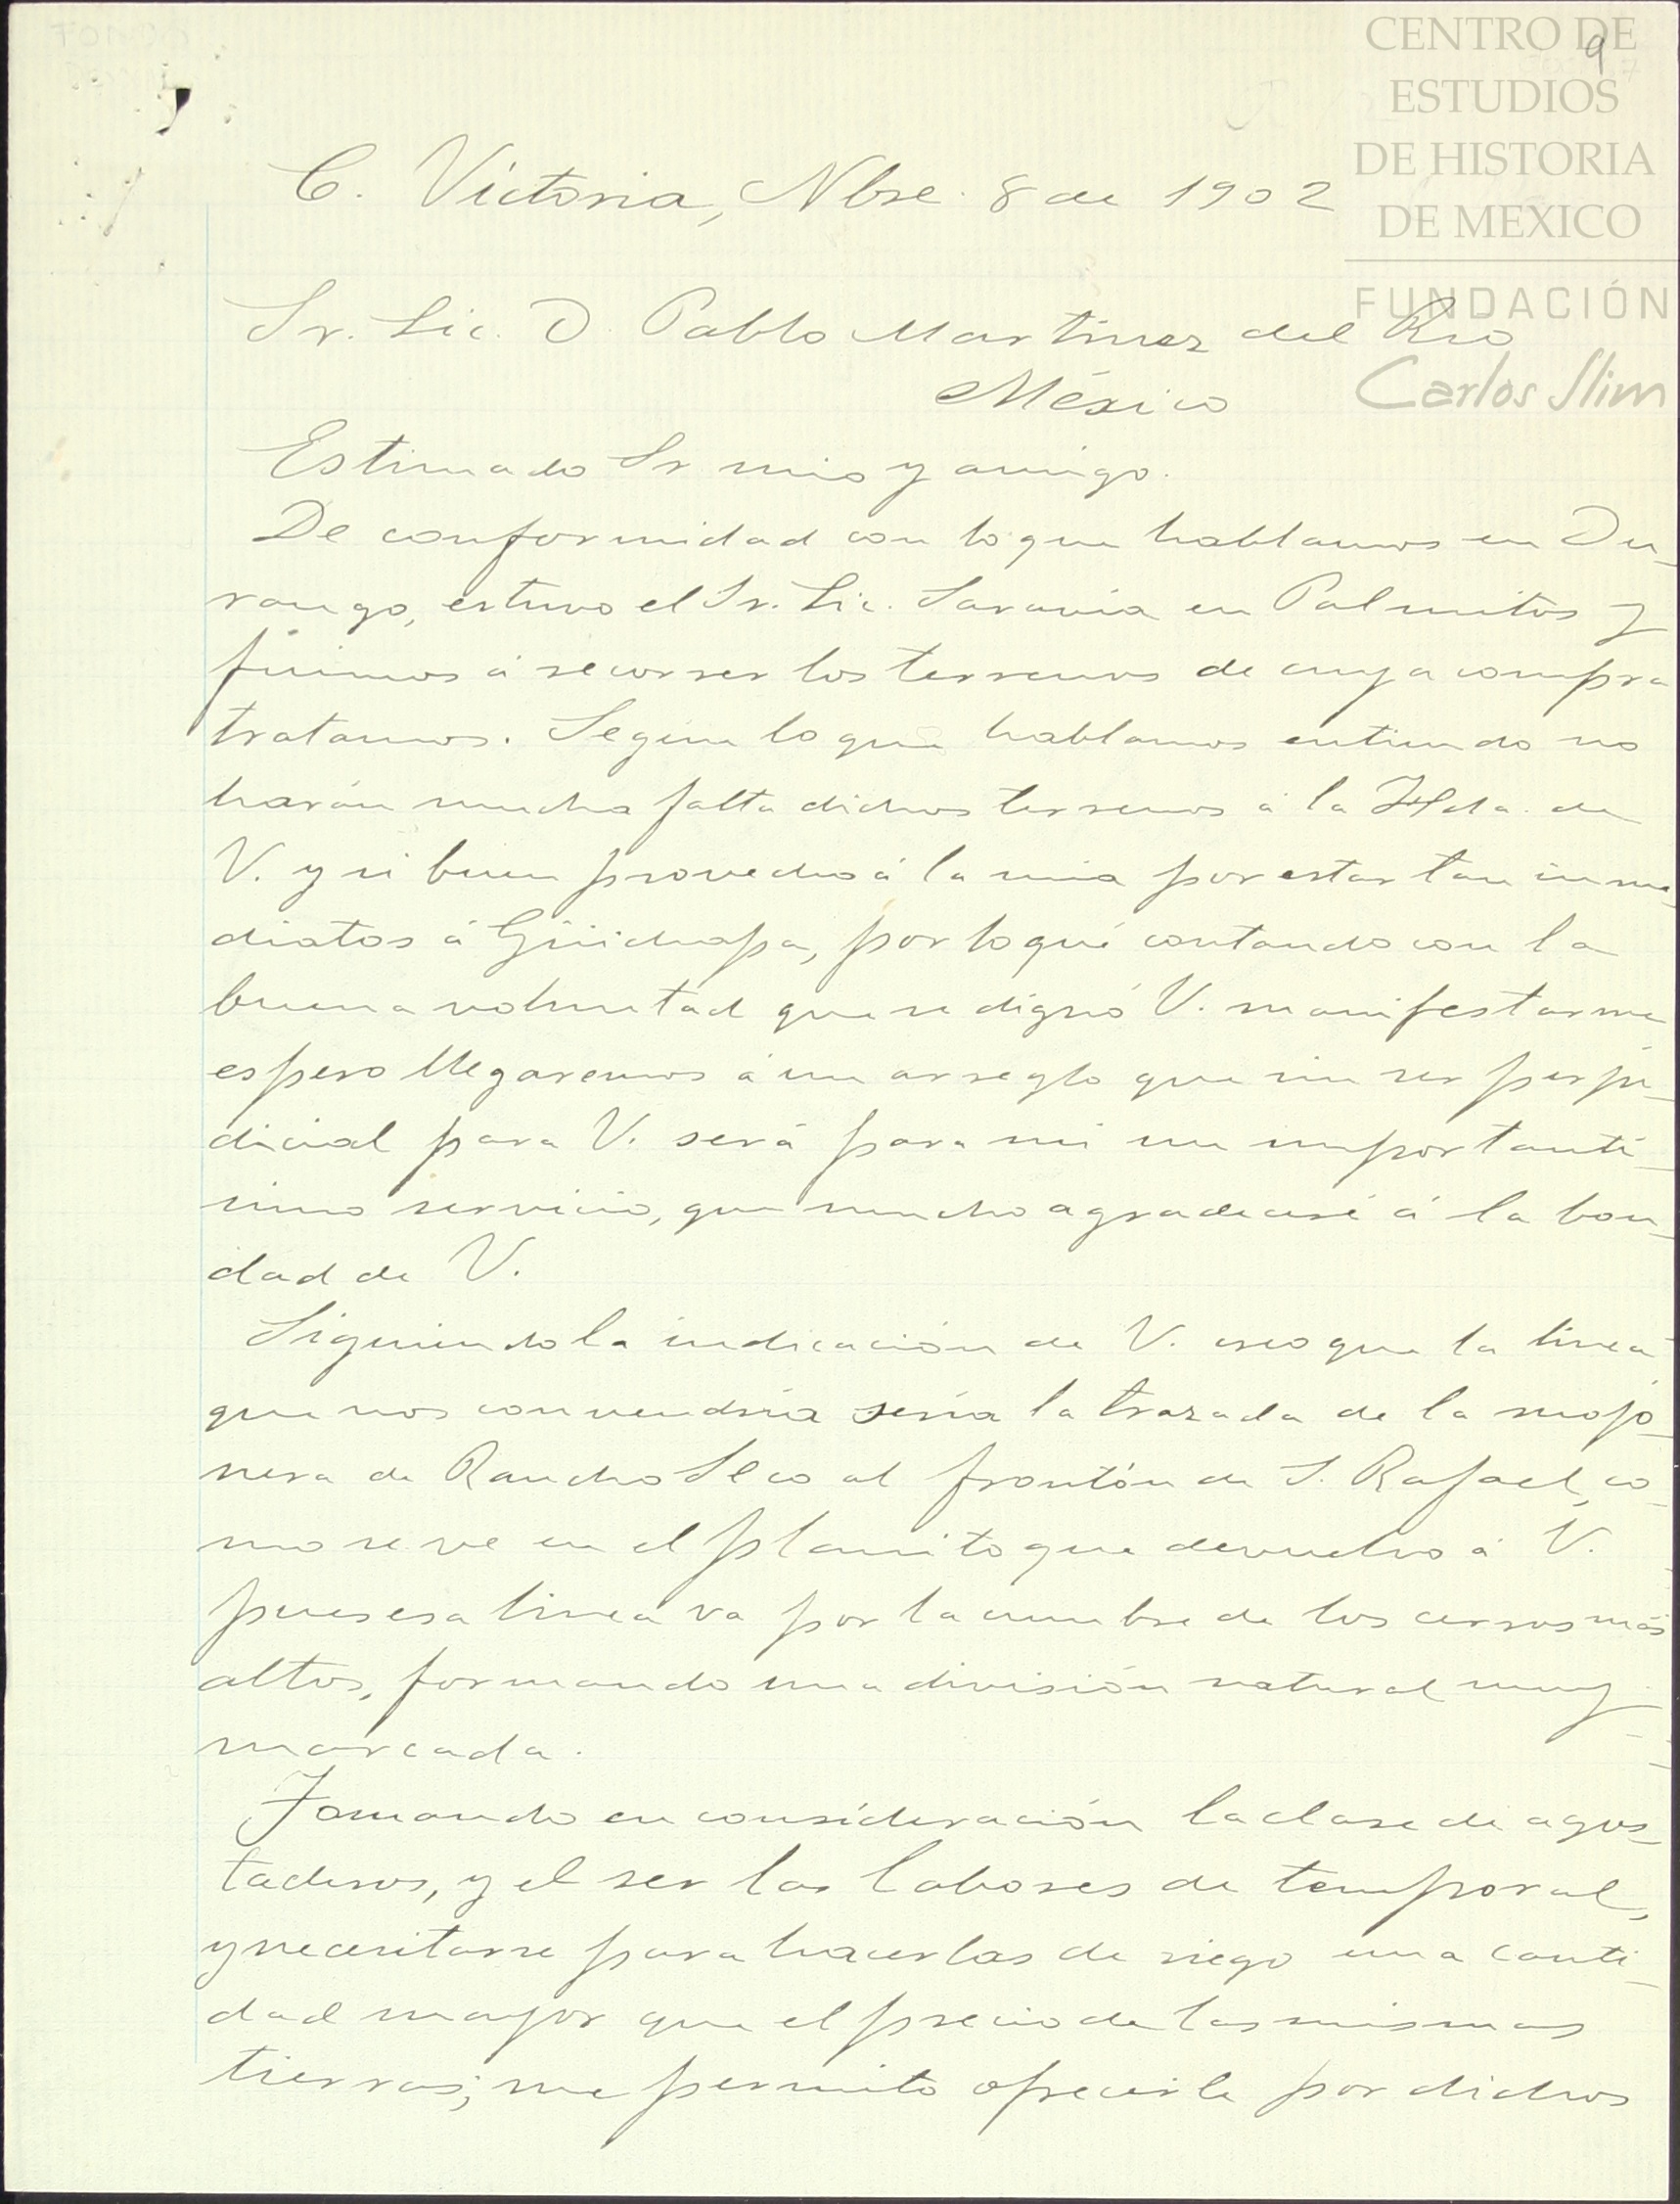 CENTRO DE
ESTUDIOS
DE HISTORIA
DE MEXICO
FUNDACIÓN
Carlos Slim
9
C. Victoria, Nbre. 8 de 1902
Sr. Lic. D. Pablo Martinez del Rio
México
Estimado Sr mio y amigo.
De conformidad con lo que hablamos en Du-
rango, estuvo el Sr. Lic. Saravia en Palmitos y
fuimos á recorrer los terrenos de cuya compra
tratamos. Segun lo que hablamos entiendo no
harán mucha falta dichos terrenos á la Hda. de
V. y si buen provecho á la mia por estar tan inme-
diatos á Güichapa, por lo qué contando con la
buena voluntad que se dignó V. manifestarme
espero llegaremos á un arreglo que sin ser perju-
dicial para V. será para mi un importanti-
simo servicio, que mucho agradeceré á la bon-
dad de V.
Siguiendo la indicación de V. creo que la linea
que nos convendria seria la trazada de la mojo-
nera de Rancho Seco al frontón de S. Rafael, co-
mo se ve en el planito que devuelvo á V.
pues esa linea va por la cumbre de los cerros más
altos, formando una división natural muy
marcada.
Tomando en consideración la clase de agos-
taderos, y el ser las labores de temporal,
y necesitarse para hacerlas de riego una canti-
dad mayor que el precio de las mismas
tierras; me permito ofrecerle por dichos